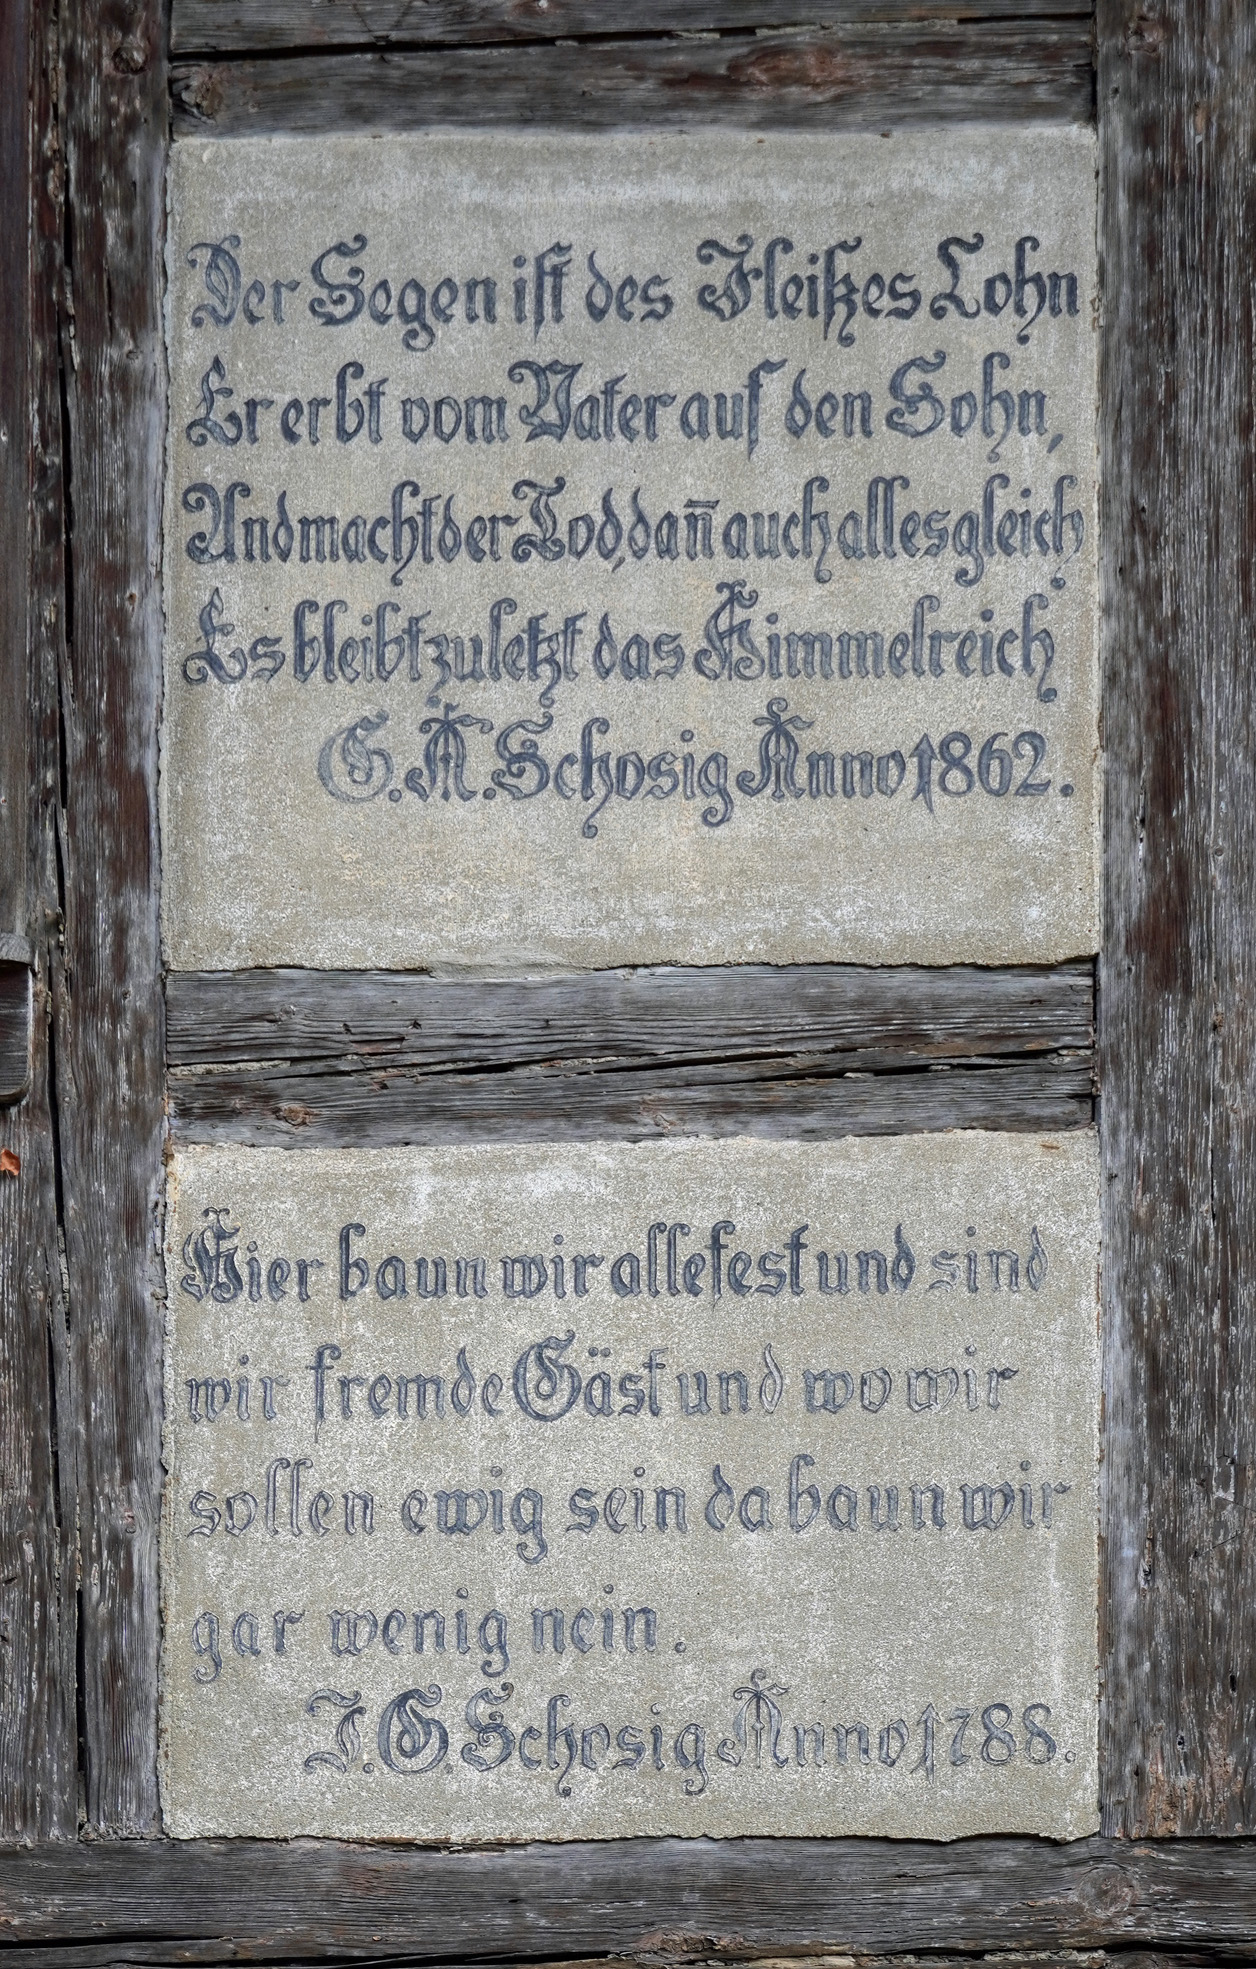 Der Segen ist des Fleißes Lohn
Er erbt vom Vater auf den Sohn,
Und macht der Tod, dan̅ auch alles gleich
Es bleibt zuletzt das Himmelreich
G. A. Schosig Anno 1862.
Hier baun wir alle fest und sind
wir fremde Gäst und wo wir
sollen ewig sein da baun wir
gar wenig nein.
J. G. Schosig Anno 1788.